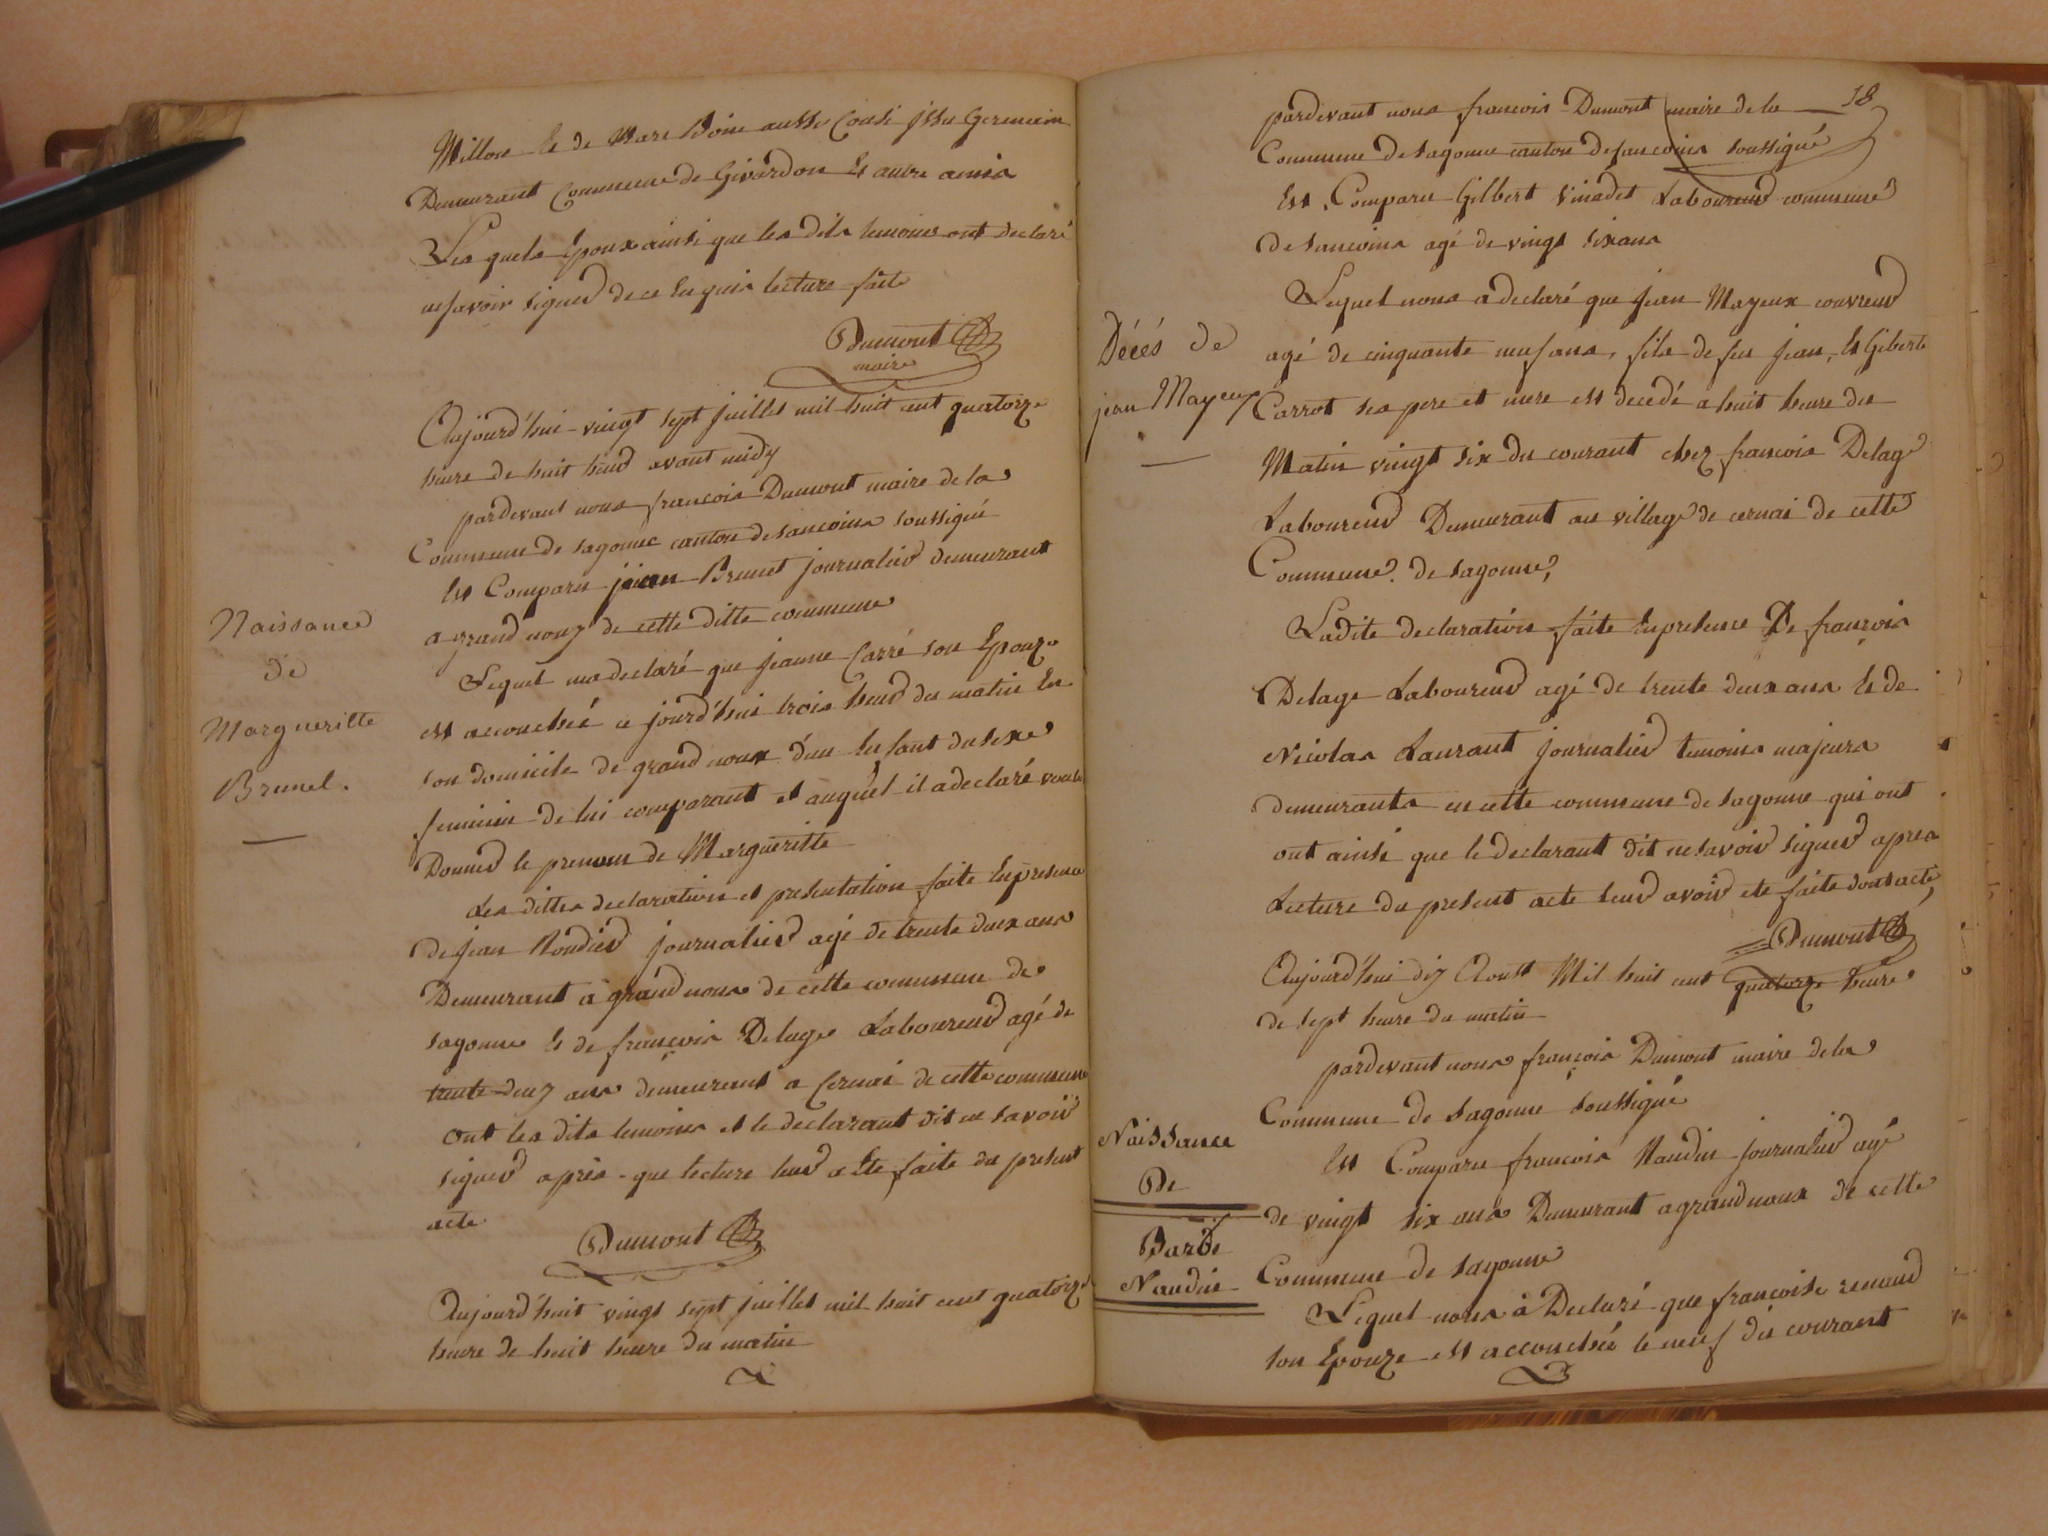 Millon Et de Marc Boin aussy Cousi issu Germain
Demeurant Commune de Givardon Et autre amis
Les quels Epoux ainsi que les dits temoins ont declaré
nesavoir signer de ce Enquis lecture faite
Dumont
maire
Aujourd'hui vingt sept juillet mil huit cent quatorze
heure de huit heur avant midy
pardevant nous francois Dumont maire de la
Commune de sagonne canton de sancoins soussigné
Est Comparu jean Brunet journalier demeurant
a grand nouz de cette ditte commune
Lequel ma declaré que jeanne Carré son Epouze
est accouchée ce jourd'hui trois heur du matin En
son domicile de grand noux d'un Enfant du sexe
feminin de lui comparant et auquel il a declaré vouloir
Donner le prenom de Margueritte
Naissance
de
Margueritte
Brunel.
Les dittes declaration et presentation faite Enpresence
de jean Rondier journalier agé de trente deux ans
Demeurant a grand noux de cette commune de
sagonne Et de françois Delage Laboureur agé de
trente deuz ans demeurant a Cernai de cette commune
ont les dits temoins et le declarant dit ne savoir
signer après que lecture leur a Ete faite du present
acte
Dumont
Aujourd'huit vingt sept juillet mil huit cent quatorze
heure de huit heure du matin
18
pardevant nous francois Dumont maire de la
Commune de sagonne canton de sancoins soussigné
Est Comparu Gilbert Vinadet Laboureur commune
de sancoins agé de vingt six ans
Lequel nous a declaré que jean Mayeux couvreur
Décés de
jean Mayeux
agé de cinquante neuf ans, fils de feu jean, Et Giberte
Carrot ses pere et mere est decedé a huit heure du
Matin vingt six du courant chez francois Delage
Laboureur Demeurant au village de cernai de cette
Commune de sagonne,
Ladite declaration faite Enpresence De françois
Delage Laboureur agé de trente deux ans Et de
Nicolas Laurant journalier temoins majeurs
demeurants en cette commune de sagonne qui ont
ont ainsi que le declarant dit nesavoir signer apres
Lecture du present acte leur avoir ete faite dont acte,
Dumont
Aujourd'hui diz Aoust Mil huit cent quatorze heure
de sept heure du matin
pardevant nous françois Dumont maire de la
Commune de sagonne soussigné
Est Comparu francois Naudin journalier agé
de vingt six ans Demeurant a grand noux de cette
Commune de sagonne
Naissance
De
Barbe
Naudin
Lequel nous à Declaré que francoise renaud
son Epouze est accouchée le neuf du courant